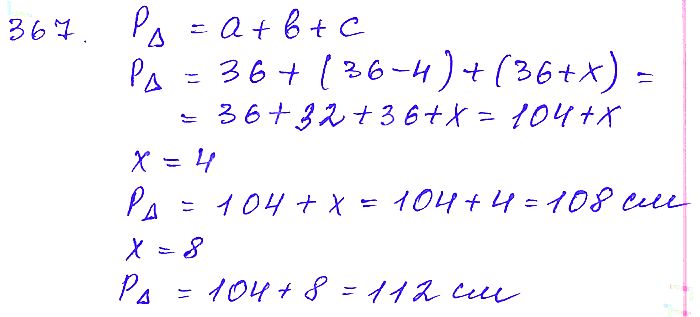 367. P△ = a + b + c
P△ = 36 + (36 - 4) + (36 + x) =
= 36 + 32 + 36 + x = 104 + x
x = 4
P△ = 104 + x = 104 + 4 = 108 см
x = 8
P△ = 104 + 8 = 112 см